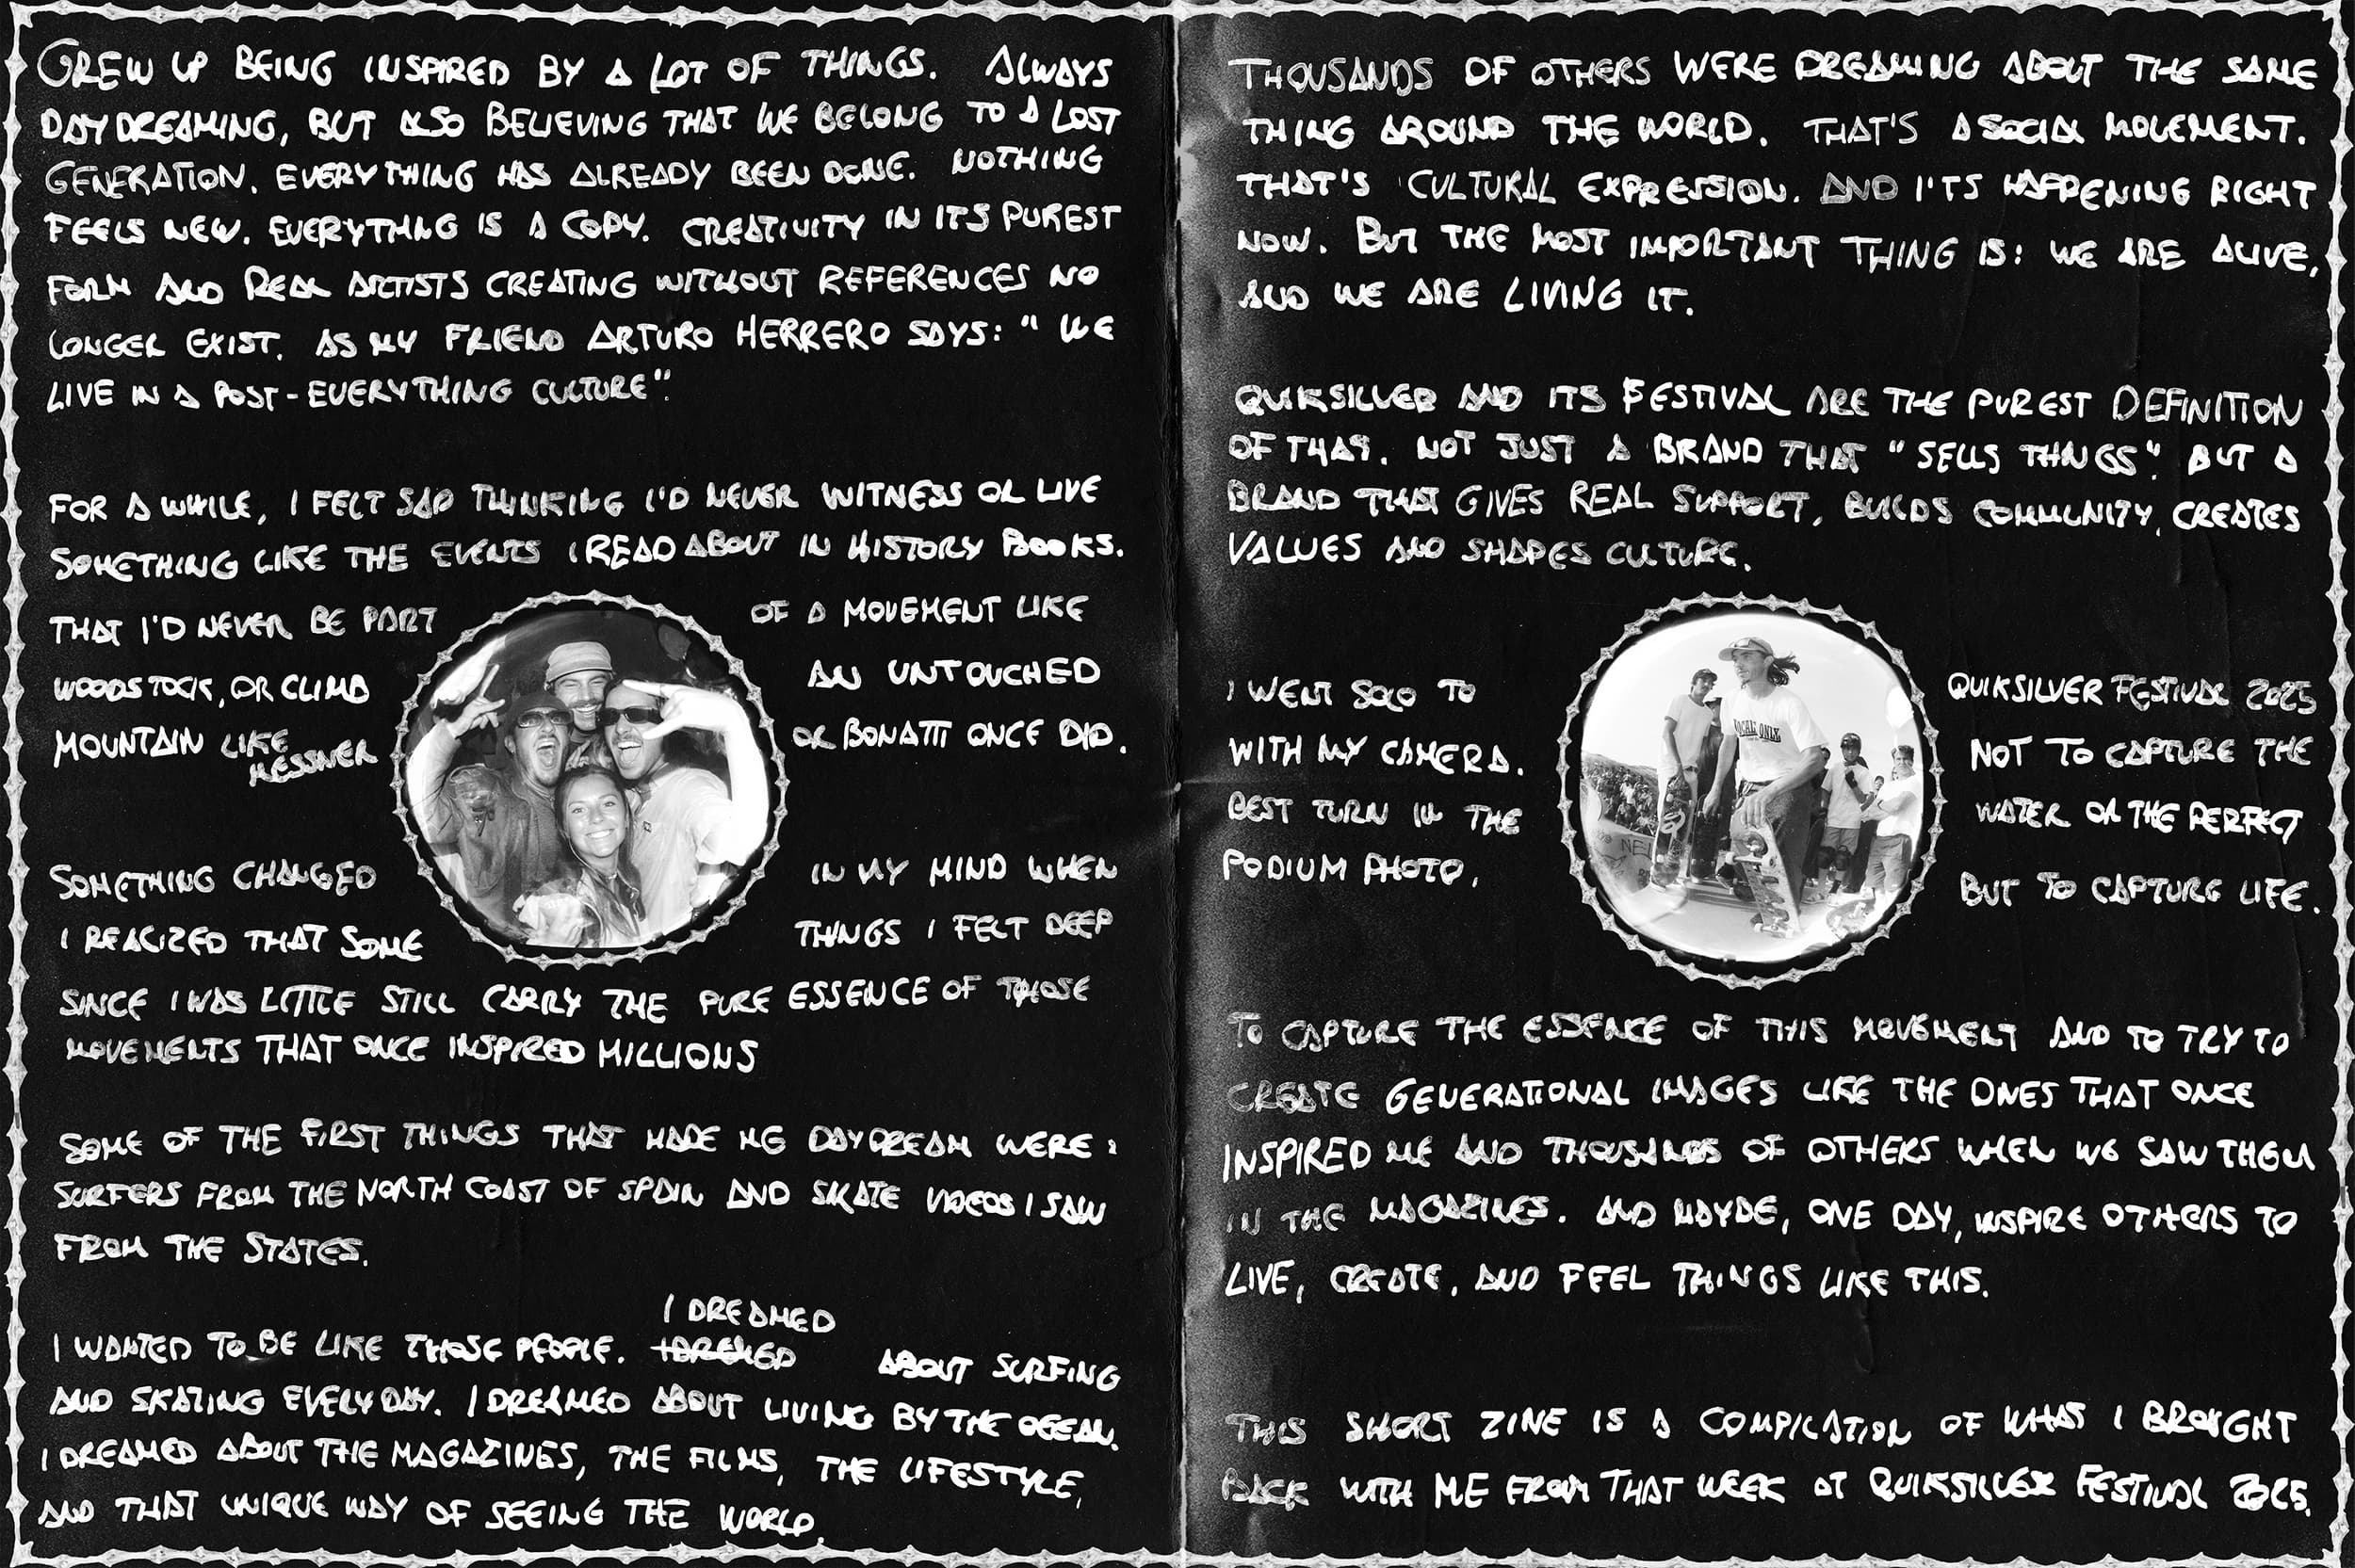 GREW UP BEING INSPIRED BY A LOT OF THINGS. ALWAYS
DAYDREAMING, BUT ALSO BELIEVING THAT WE BELONG TO A LOST
GENERATION. EVERYTHING HAS ALREADY BEEN DONE. NOTHING
FEELS NEW. EVERYTHING IS A COPY. CREATIVITY IN ITS PUREST
FORM AND REAL ARTISTS CREATING WITHOUT REFERENCES NO
LONGER EXIST. AS MY FRIEND ARTURO HERRERO SAYS: "WE
LIVE IN A POST-EVERYTHING CULTURE".
FOR A WHILE, I FELT SAD THINKING I'D NEVER WITNESS OR LIVE
SOMETHING LIKE THE EVENTS I READ ABOUT IN HISTORY BOOKS.
THAT I'D NEVER BE PART OF A MOVEMENT LIKE
WOODSTOCK, OR CLIMB AN UNTOUCHED
MOUNTAIN LIKE MESSNER OR BONATTI ONCE DID.
SOMETHING CHANGED IN MY MIND WHEN
I REALIZED THAT SOME THINGS I FELT DEEP
SINCE I WAS LITTLE STILL CARRY THE PURE ESSENCE OF THOSE
MOVEMENTS THAT ONCE INSPIRED MILLIONS
SOME OF THE FIRST THINGS THAT MADE ME DAYDREAM WERE:
SURFERS FROM THE NORTH COAST OF SPAIN AND SKATE VIDEOS I SAW
FROM THE STATES.
I WANTED TO BE LIKE THOSE PEOPLE. I DREAMED ABOUT SURFING
AND SKATING EVERYDAY. I DREAMED ABOUT LIVING BY THE OCEAN.
I DREAMED ABOUT THE MAGAZINES, THE FILMS, THE LIFESTYLE,
AND THAT UNIQUE WAY OF SEEING THE WORLD.
THOUSANDS OF OTHERS WERE DREAMING ABOUT THE SAME
THING AROUND THE WORLD. THAT'S A SOCIAL MOVEMENT.
THAT'S CULTURAL EXPRESSION. AND I'TS HAPPENING RIGHT
NOW. BUT THE MOST IMPORTANT THING IS: WE ARE ALIVE,
AND WE ARE LIVING IT.
QUIKSILVER AND ITS FESTIVAL ARE THE PUREST DEFINITION
OF THAT. NOT JUST A BRAND THAT "SELLS THINGS". BUT A
BRAND THAT GIVES REAL SUPPORT, BUILDS COMMUNITY, CREATES
VALUES AND SHAPES CULTURE.
I WENT SOLO TO QUIKSILVER FESTIVAL 2025
WITH MY CAMERA. NOT TO CAPTURE THE
BEST TURN IN THE WATER OR THE PERFECT
PODIUM PHOTO, BUT TO CAPTURE LIFE.
LOCAL ONLY
TO CAPTURE THE ESSENCE OF THIS MOVEMENT AND TO TRY TO
CREATE GENERATIONAL IMAGES LIKE THE ONES THAT ONCE
INSPIRED ME AND THOUSANDS OF OTHERS WHEN WE SAW THEM
IN THE MAGAZINES. AND MAYBE, ONE DAY, INSPIRE OTHERS TO
LIVE, CREATE, AND FEEL THINGS LIKE THIS.
THIS SHORT ZINE IS A COMPILATION OF WHAT I BROUGHT
BACK WITH ME FROM THAT WEEK AT QUIKSILVER FESTIVAL 2025.